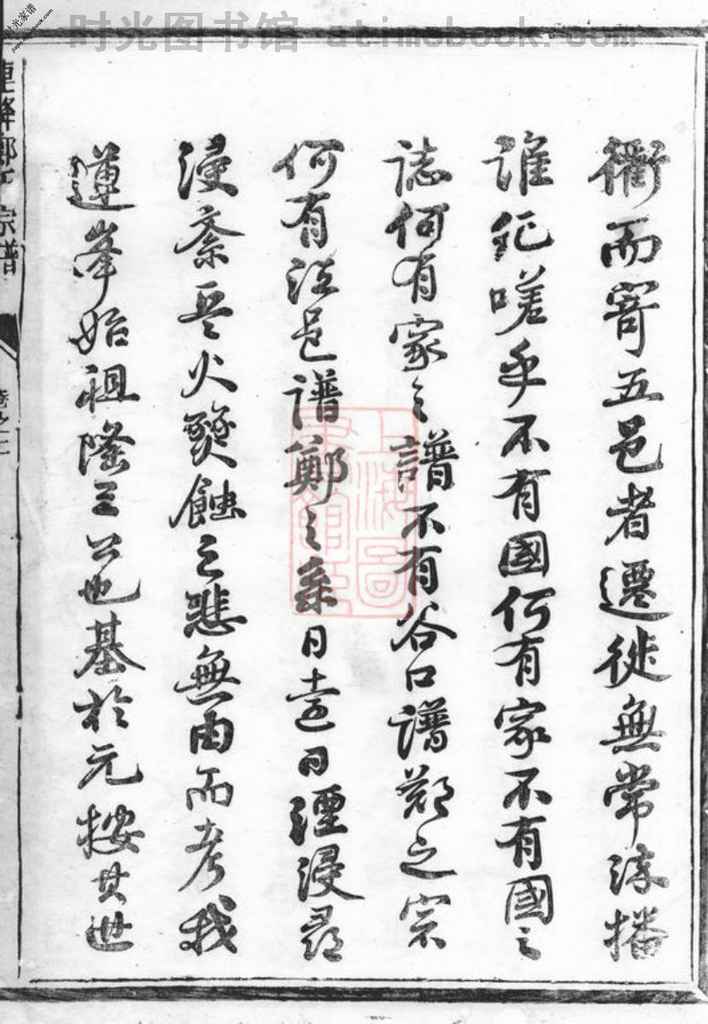 时光图书馆 atimebook.com
衢而寄五邑者遷徙無常流播
誰紀嗟乎不有國何有家不有國之
誌何有家之譜不有谷口譜鄭之宗
何有江邑譜鄭之系日遠日湮浸尋
浸紊兵火燹蝕之悲無由而考我
蓮峯始祖隆三公也基於元按其世
宗譜